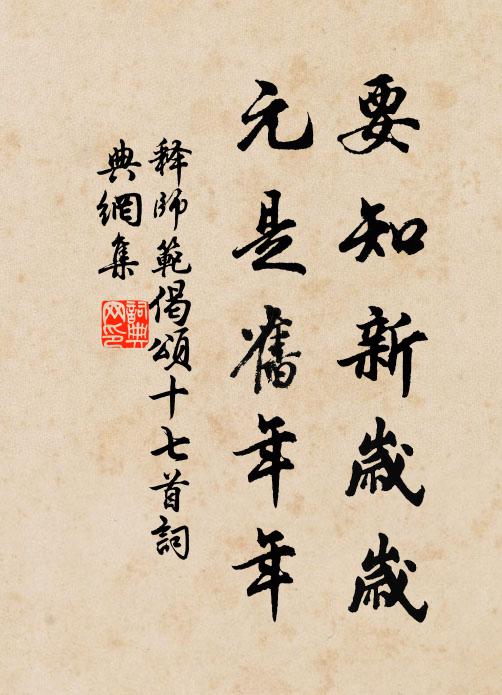 要知新歲歲
元是舊年年
释師範偈頌十七首詞
典網集
詞典
网印